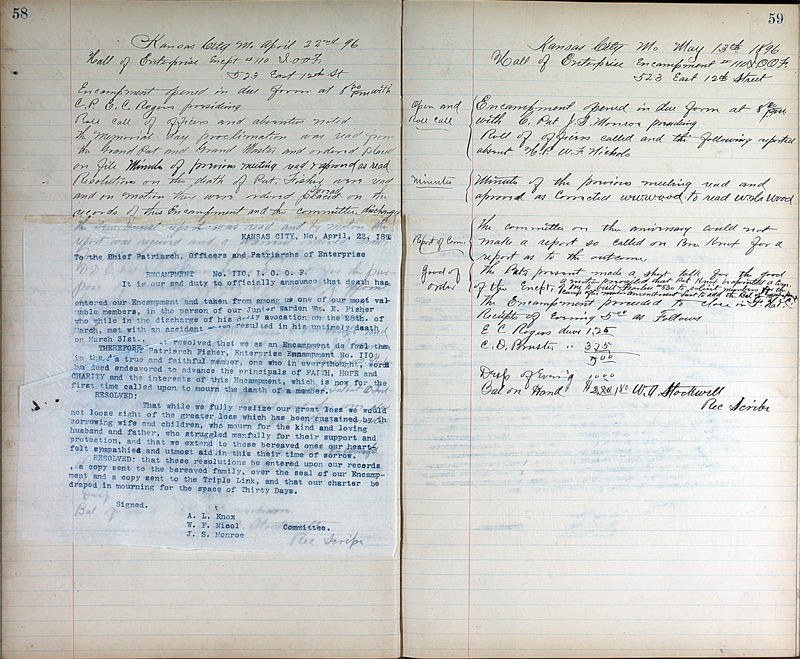 58
Kansas City Mo April 22nd 96
Hall of Enterprise Encpt # 110 I.O.O.F.
523 East 12th St
Encampment opened in due form at 8 00 pm with
C.P. E.C. Rogers presiding
Roll call of officers and absentees noted
the Memorial Day proclamation was read from
the Grand Pat and Grand Master and ordered placed
on file Minutes of previous meeting read & approved as read
Resolutions on the death of Pat. Fisher were read
and on motion they were ordered spread on the
records of this Encampment and the committee discharged
KANSAS CITY, Mo, April, 22, 189
To the Chief Patriarch, Officers and Patriarchs of Enterprise
ENCAMPMENT No. IIO, I. O. O. F.
It is our sad duty to officially announce that death has
entered our Encampment and taken from among us one of our most val-
uable members, in the person of our Junior Warden Wm. E. Fisher
who while in the discharge of his daily avocation on the 28th. of
March, met with an accident resulted in his untimely death
on March 31st..
THEREFORE resolved that we as an Encampment do feel that
in the Patriarch Fisher, Enterprise Enmapment No. IIO
a true and faithful member, one who in everythought, word
deed endeavored to advance the principals of FAITH, HOPE and
CHARITY and the interests of this Encampment, which is now for the
first time called upon to mourn the death of a member.
RESOLVED:
That while we fully realize our great loss we would
not loose sight of the greater loss which has been sustained by th
sorrowing wife and children, who mourn for the kind and loving
husband and father, who struggled manfully for their support and
protection, and that we extend to those bereaved ones our heart
felt sympathies and utmost aid in this their time of sorrow.
RESOLVED: that these resolutions be entered upon our records
, a copy sent to the bereaved family, over the seal of our Encamp-
ment and a copy sent to the Triple Link, and that our charter be
draped in mourning for the space of Thirty Days.
Signed.
A. L. Knox
W. F. Nicol Committee.
J. S. Monroe
Bal of
Rec Scribe
59
Kansas City Mo. May 13th 1896
Hall of Enterprise Encampment # 110 I.O.O.F.
523 East 12th Street
Open and
Roll call
Encampment opened in due form at 8 00 pm
with C. Pat J. S. Monroe presiding
Roll of officers called and the following reported
absent H.P. W. F. Nichols
Minutes
Minutes of the previous meeting read and
approved as corrected to read
Report of Com.
The committee on the aniversary could not
make a report so called on Bro Knox for a
report as to the outcome
Good of
order
The Pats present made a short talk for the good
of the Encpt.
The Encampment proceeded to close in F. H. & C.
Receipts of Evening 5.00 as Follows
E C Rogers dues 1.25
C. D. Brewster " 3.75
5.00
Bal on Hand W. A. Stockwell
Rec Scribe